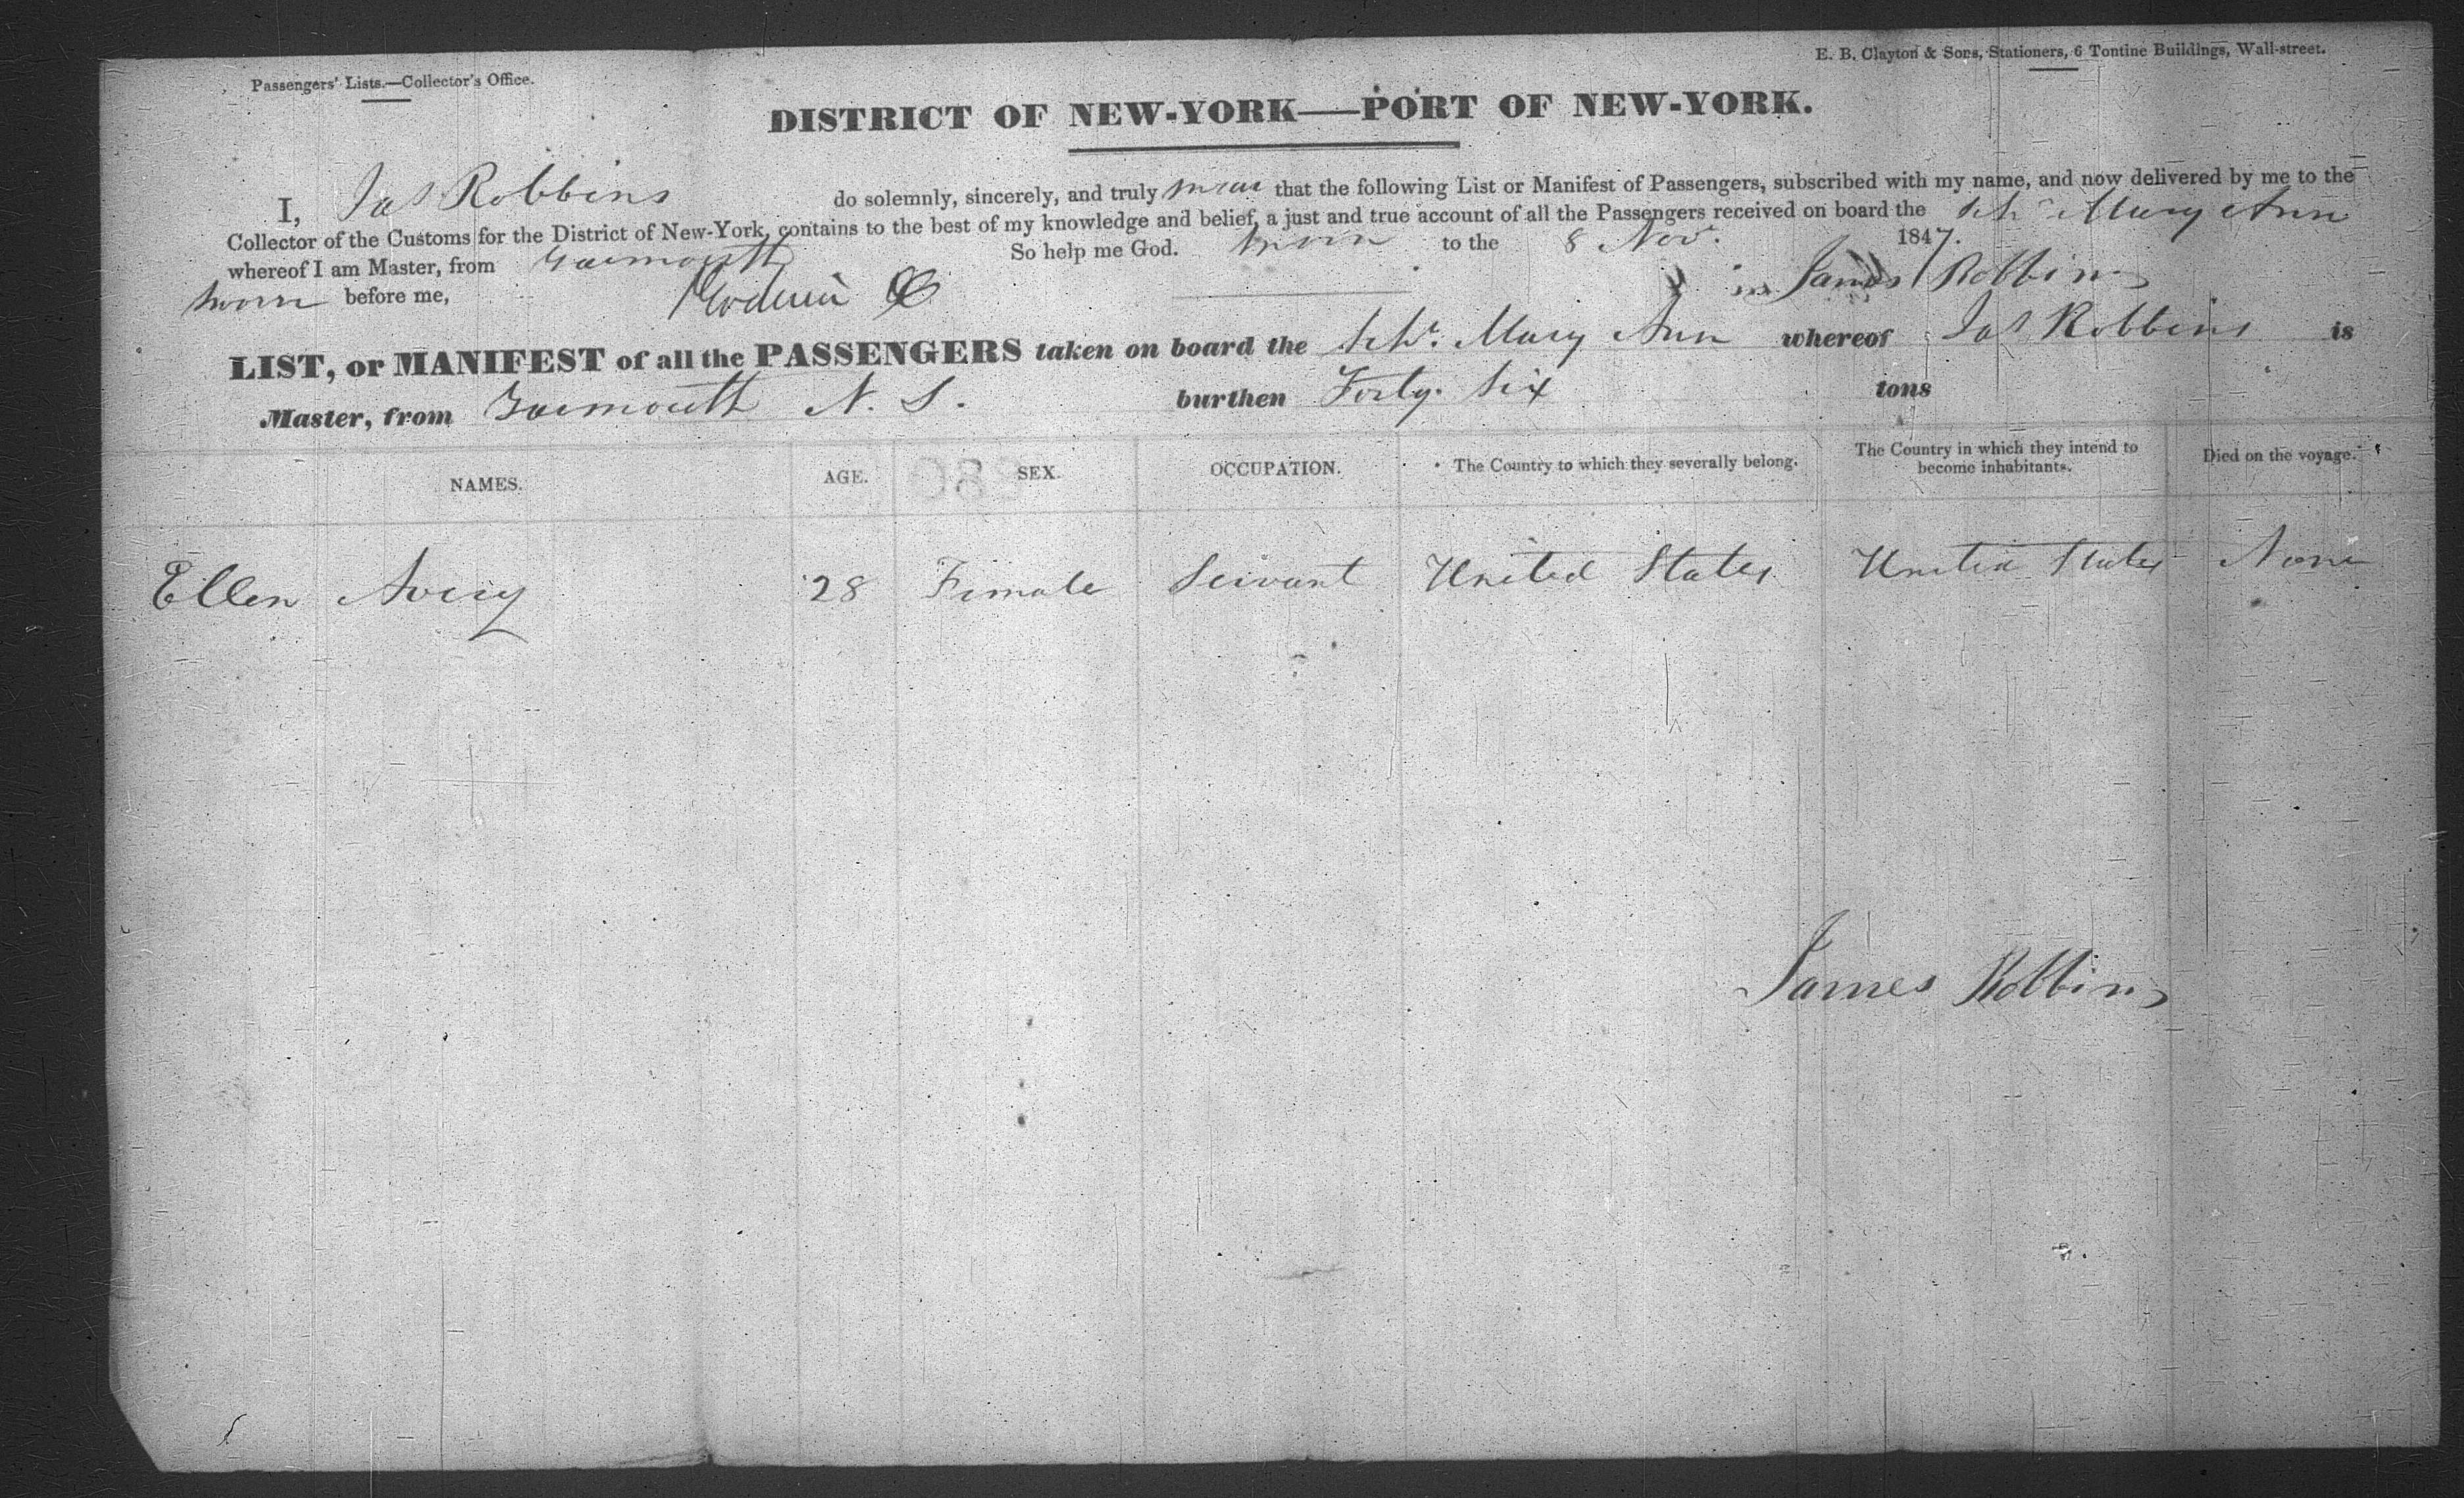 Passengers' Lists.—Collector's Office.
E. B. Clayton & Sons, Stationers, 6 Tontine Buildings, Wall-street.
DISTRICT OF NEW-YORK—PORT OF NEW-YORK.
I, Jas Robbins do solemnly, sincerely, and truly swear that the following List or Manifest of Passengers, subscribed with my name, and now delivered by me to the
Collector of the Customs for the District of New-York, contains to the best of my knowledge and belief, a just and true account of all the Passengers received on board the Schr Mary Ann
whereof I am Master, from Yarmouth So help me God. Sworn to the 8 Nov. 1847.
Sworn before me, James Robbins
LIST, or MANIFEST of all the PASSENGERS taken on board the Schr. Mary Ann whereof Jas Robbins is
Master, from Yarmouth N. S. burthen Forty. Six tons
NAMES. AGE. SEX. OCCUPATION. The Country to which they severally belong. The Country in which they intend to become inhabitants. Died on the voyage.
Ellen Avery 28 Female Servant United States United States None
James Robbins